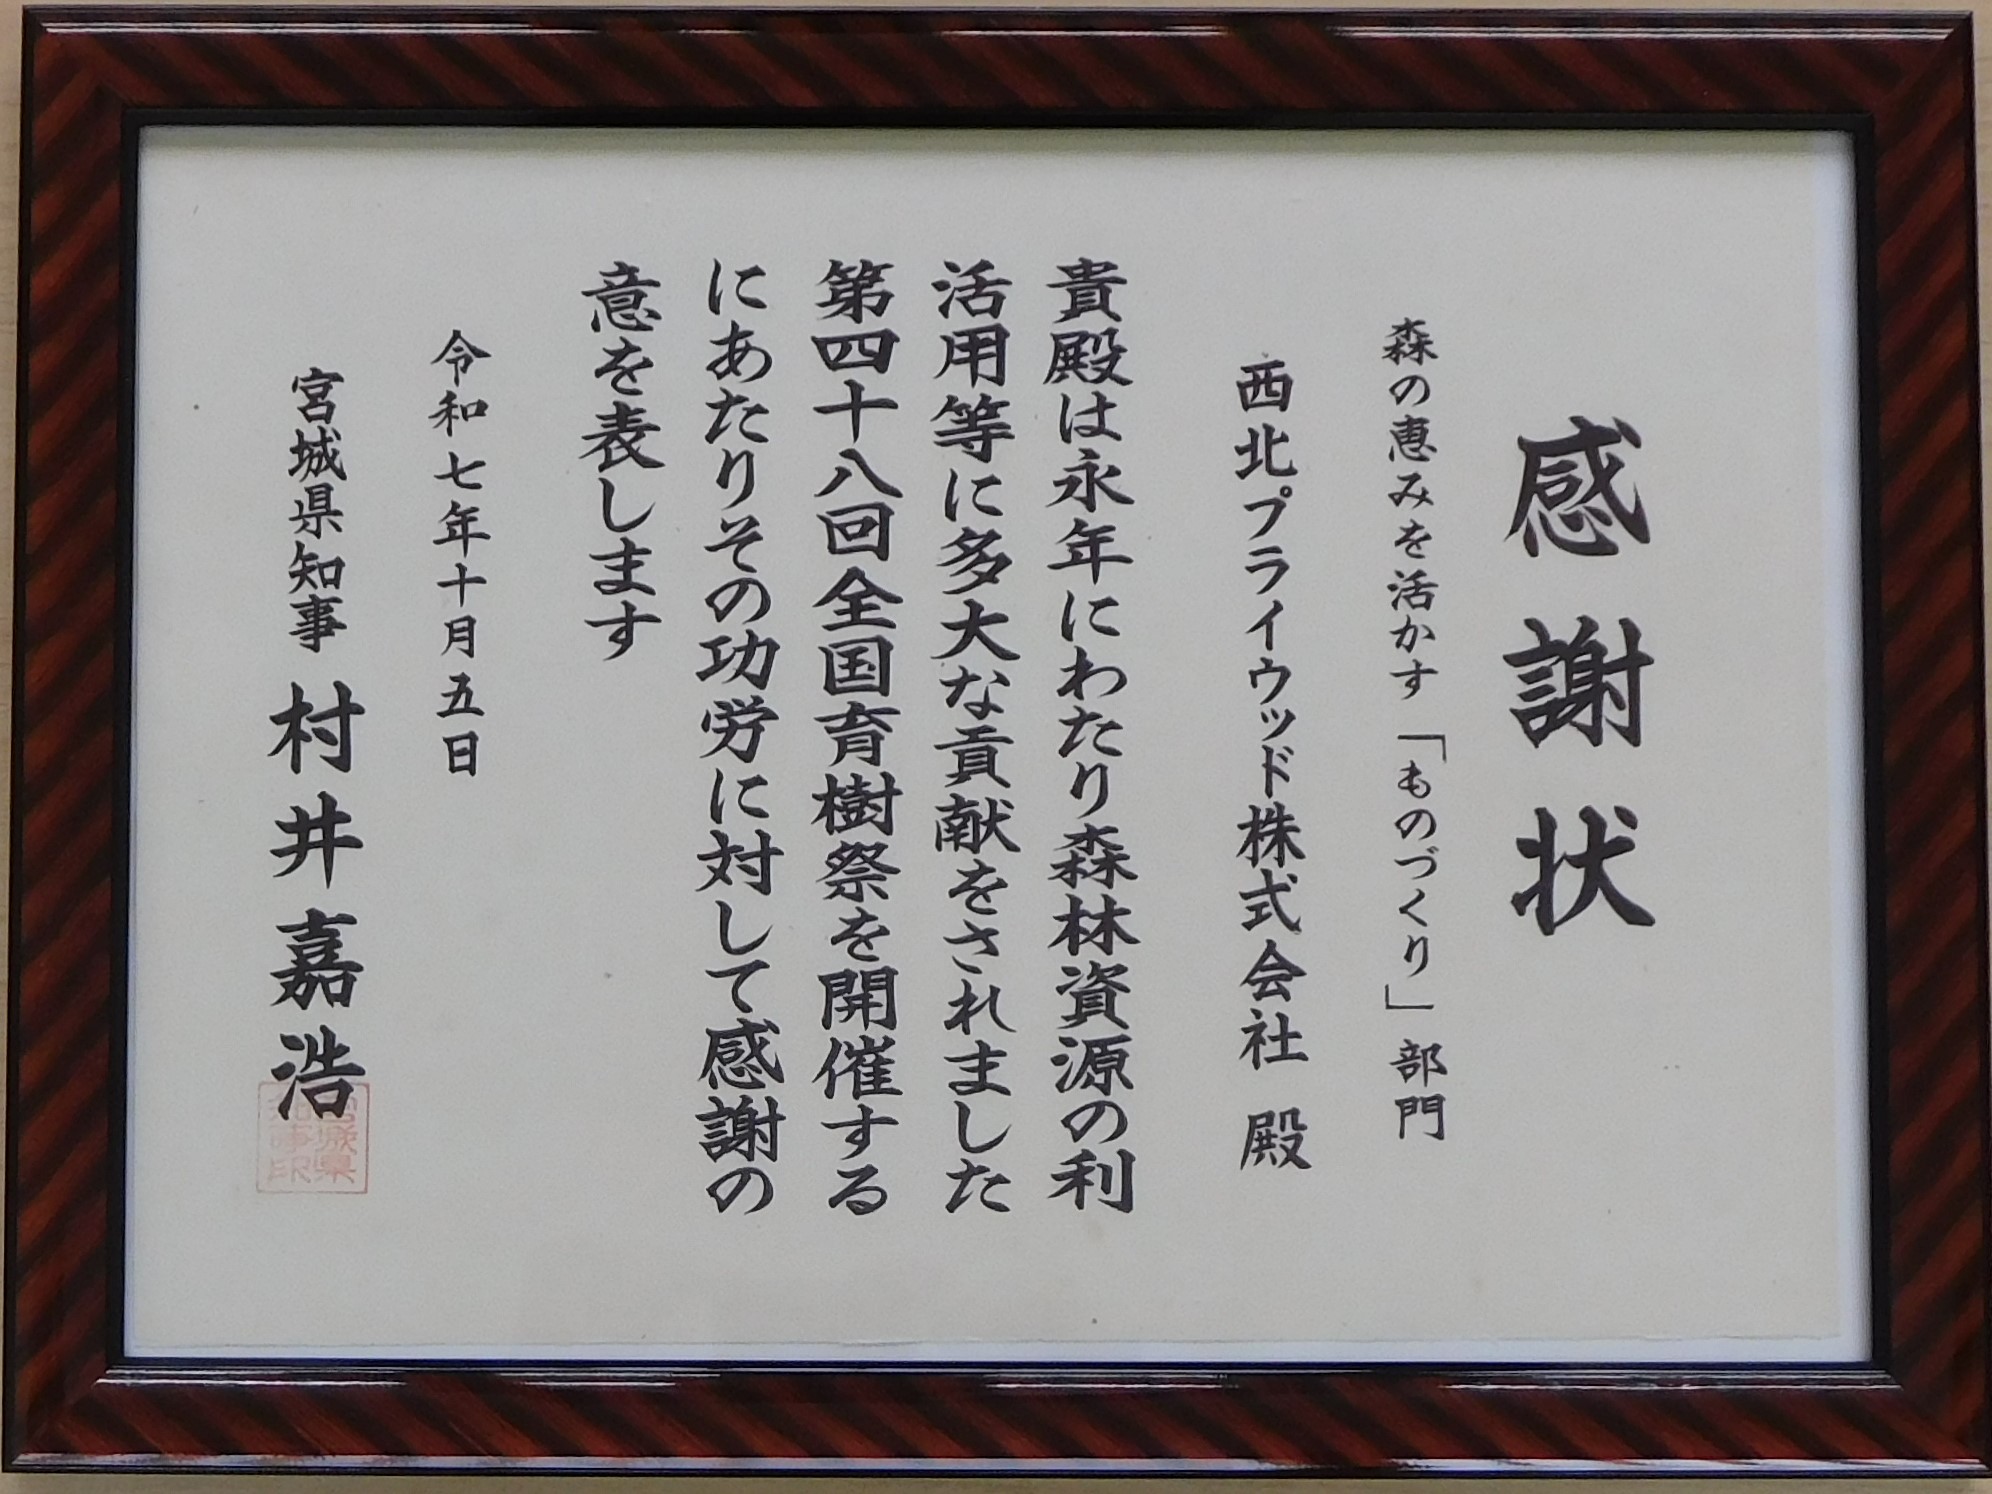 感謝状
森の恵みを活かす「ものづくり」部門
西北プライウッド株式会社 殿
貴殿は永年にわたり森林資源の利
活用等に多大な貢献をされました
第四十八回全国育樹祭を開催する
にあたりその功労に対して感謝の
意を表します
令和七年十月五日
宮城県知事 村井嘉浩
宮城県
知事印